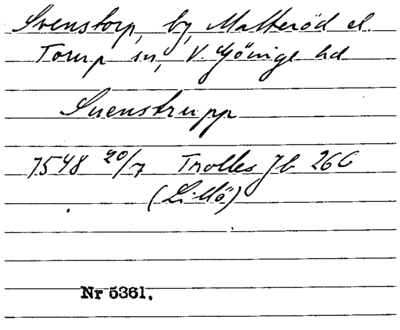 Svenstorp, by, Matteröd el.
Torup sn, V. Göinge hd
Suenstrupp
1548 20/7 Trolles Jb 266
(Lillö)
Nr 5361.